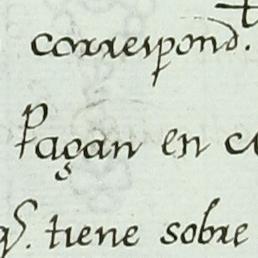 correspond.
Pagan en c
qs. tiene sobre